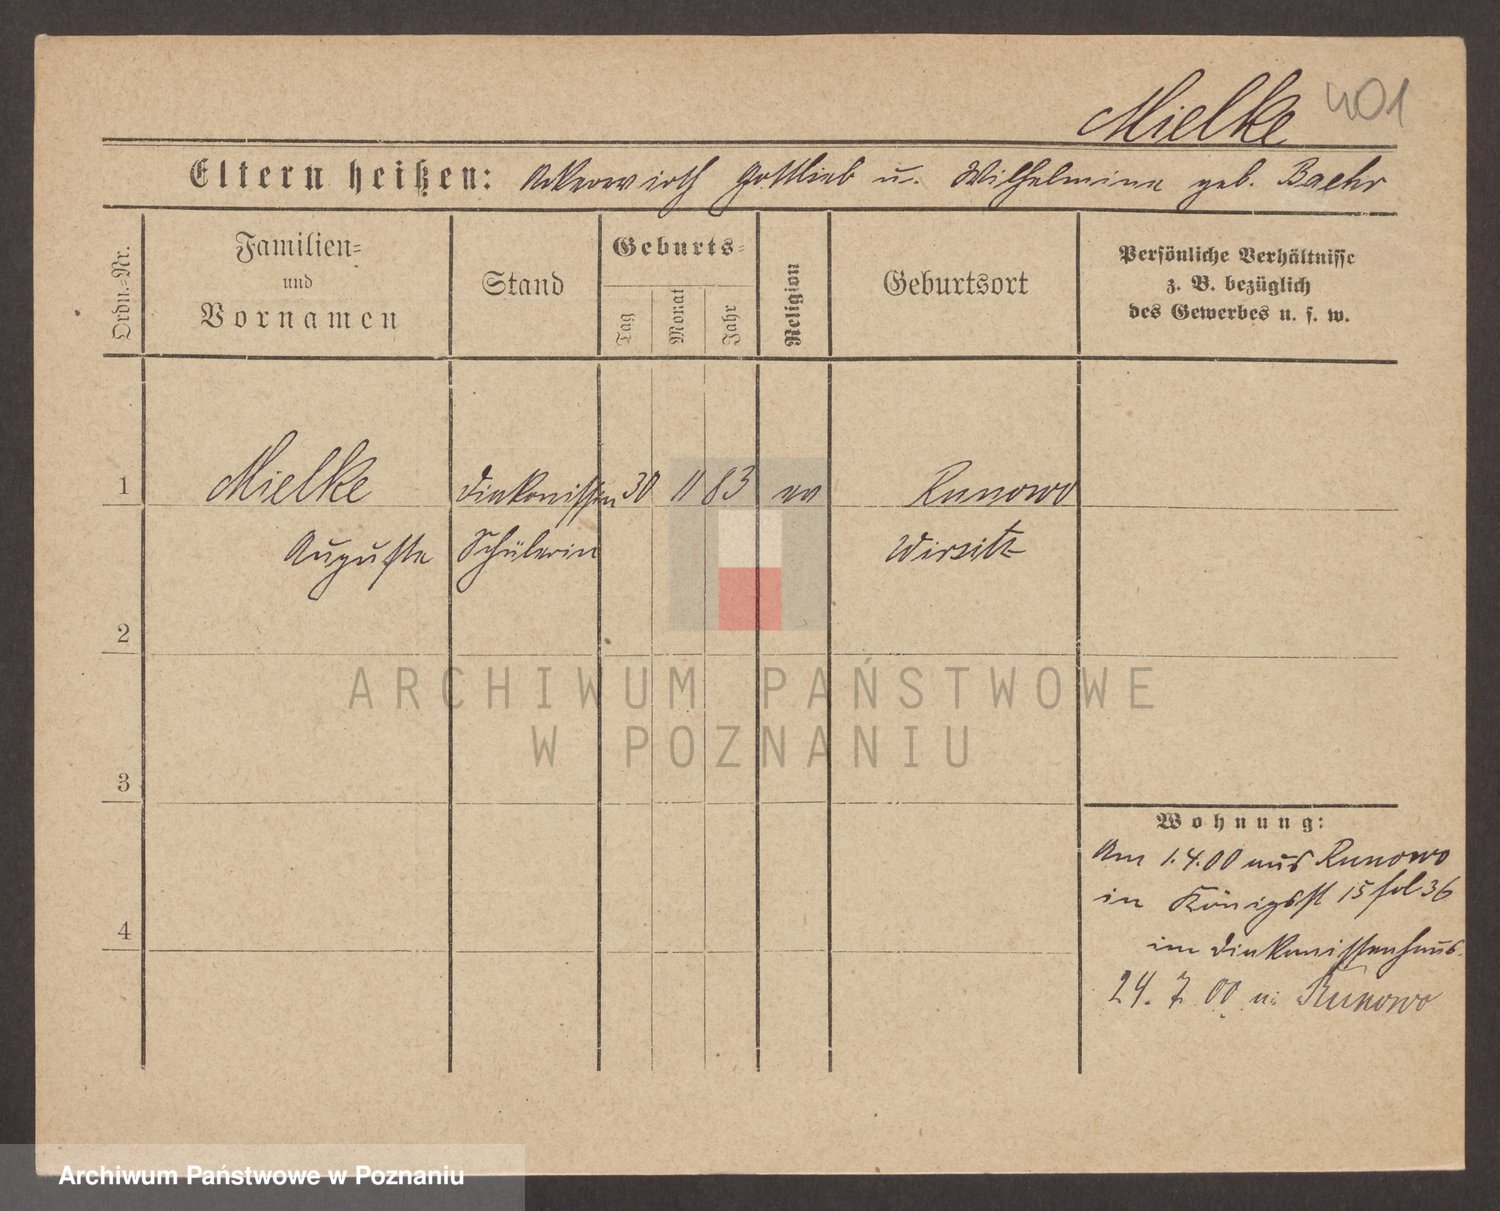 Mielke 401
Eltern heißen: Ackerwirth Gottlieb u. Wilhelmine geb. Baehr
Ordn.=Nr.
Familien=
und
Vornamen
Stand
Geburts=
Tag
Monat
Jahr
Religion
Geburtsort
Persönliche Verhältnisse
z. B. bezüglich
des Gewerbes u. s. w.
1 Mielke Diakonissen 30 11 83 ev Runowo
Auguste Schülerin Wirsitz
2
3
4
Wohnung:
Am 1.4.00 aus Runowo
in Königsst 15 fol 36
im Diakonissenhaus.
24. 7 00 n: Runowo
ARCHIWUM PAŃSTWOWE
W POZNANIU
Archiwum Państwowe w Poznaniu